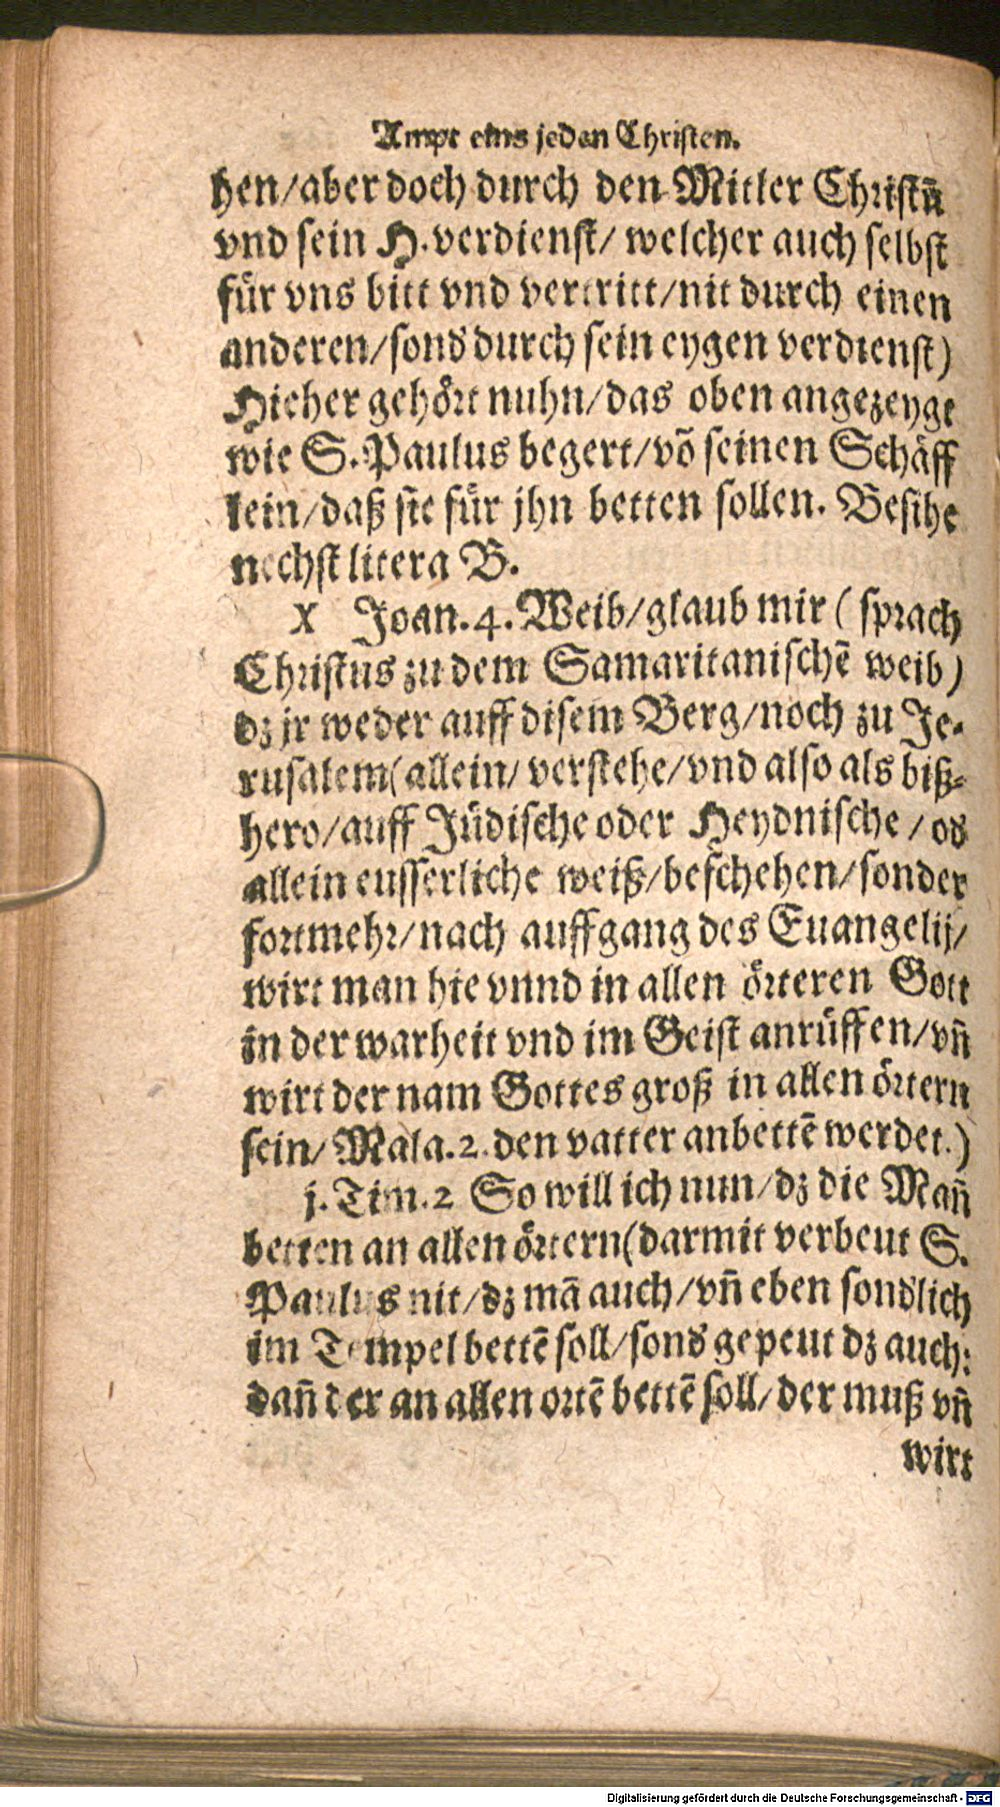 Ampt eins jeden Christen.
hen/aber doch durch den Mitler Christũ
vnd sein H. verdienst/ welcher auch selbst
für vns bitt vnd vertritt/nit durch einen
anderen/sond' durch sein eygen verdienst)
Hieher gehört nuhn/das oben angezeygt
wie S. Paulus begert/võ seinen Schäff
lein/daß sie für jhn betten sollen. Besihe
nechst litera B.
X Joan.4. Weib/glaub mir ( sprach
Christus zu dem Samaritanischē weib)
dz jr weder auff disem Berg/noch zu Je-
rusalem(allein/ verstehe/vnd also als biß-
hero/auff Jüdische oder Heydnische / od'
allein eusserliche weiß/beschehen/sonder
fortmehr/nach auffgang des Euangelij/
wirt man hie vnnd in allen örteren Gott
in der warheit vnd im Geist anrüffen/vñ
wirt der nam Gottes groß in allen örtern
sein/ Mala.2. den vatter anbettē werdet.)
j. Tim.2 So will ich nun/dz die Mañ
betten an allen örtern(darmit verbeut S.
Paulus nit/dz mā auch/vñ eben sond'lich
im Tempel bettē soll/sond' gepeut dz auch:
dañ der an allen ortē bettē soll/der muß vñ
wirt
Digitalisierung gefördert durch die Deutsche Forschungsgemeinschaft - DFG